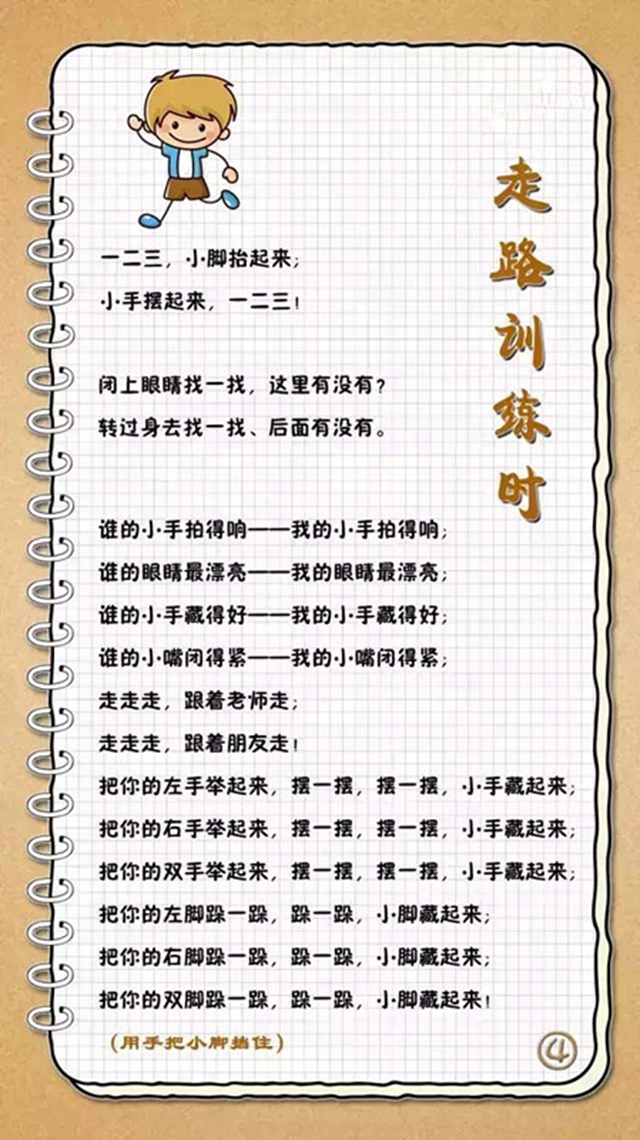 走路训练时
一二三，小脚抬起来；
小手摆起来，一二三！
闭上眼睛找一找，这里有没有？
转过身去找一找、后面有没有。
谁的小手拍得响——我的小手拍得响；
谁的眼睛最漂亮——我的眼睛最漂亮；
谁的小手藏得好——我的小手藏得好；
谁的小嘴闭得紧——我的小嘴闭得紧；
走走走，跟着老师走；
走走走，跟着朋友走！
把你的左手举起来，摆一摆，摆一摆，小手藏起来；
把你的右手举起来，摆一摆，摆一摆，小手藏起来；
把你的双手举起来，摆一摆，摆一摆，小手藏起来；
把你的左脚跺一跺，跺一跺，小脚藏起来；
把你的右脚跺一跺，跺一跺，小脚藏起来；
把你的双脚跺一跺，跺一跺，小脚藏起来！
（用手把小脚挡住）
④